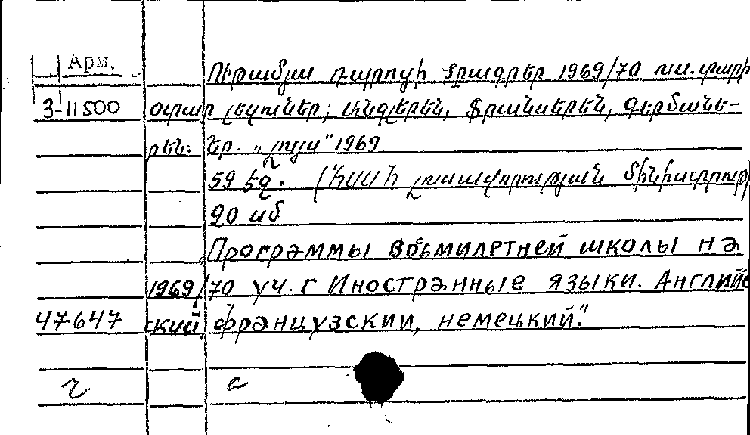 Арм.
Ութամյա դպրոցի ծրագրեր 1969/70 ուս. տարի
3-11500 օտար լեզուներ; անգլերեն, ֆրանսերեն, գերմանե-
րեն. Եր. „Լույս" 1969
59 էջ. (ՀՍՍՀ լուսավորության մինիստրութ
20 սմ
Программы восьмилетней школы на
1969/70 уч. г Иностранные языки. Английс
47647 кий, французский, немецкий."